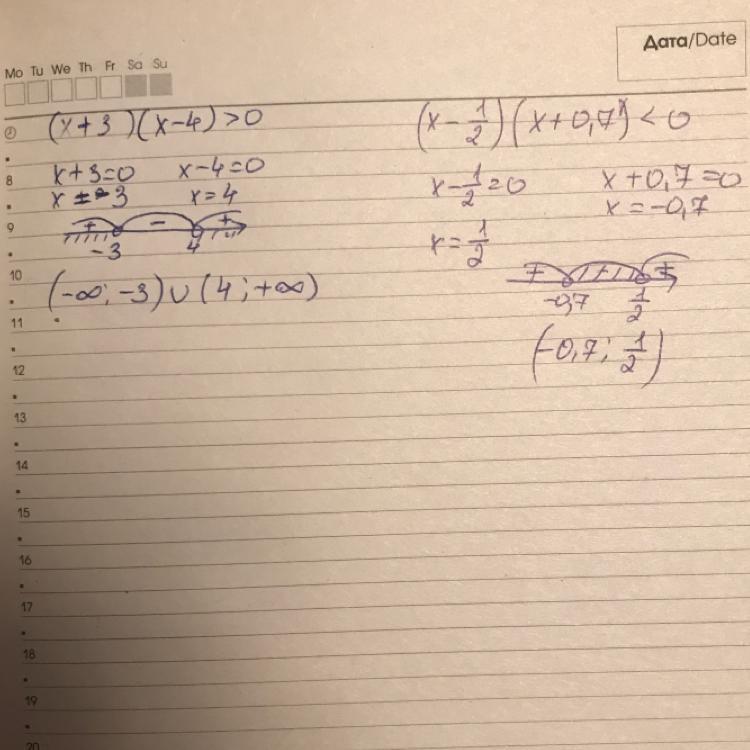 Дата/Date
Mo Tu We Th Fr Sa Su
(x+3)(x-4)>0
x+3=0 x-4=0
x=-3 x=4
+ - +
-3 4
(-∞; -3)∪(4; +∞)
(x-1/2)(x+0,7)<0
x-1/2=0 x+0,7=0
x=1/2 x=-0,7
+ +
-0,7 1/2
(-0,7; 1/2)
8
9
10
11
12
13
14
15
16
17
18
19
20